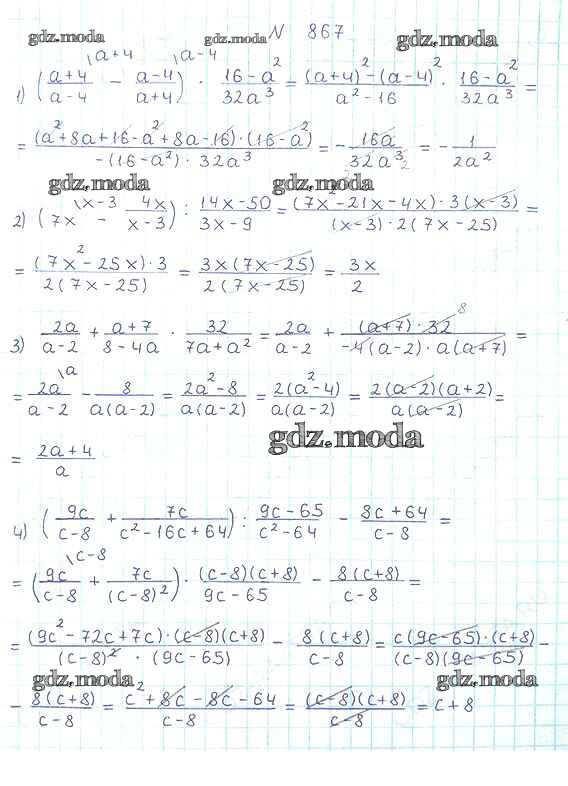 gdz.moda gdz.moda N 867 gdz.moda
1) ((a+4)/(a-4) \a+4 - (a-4)/(a+4) \a-4) · (16-a²)/(32a³) = ((a+4)²-(a-4)²)/(a²-16) · (16-a²)/(32a³) =
= ((a²+8a+16-a²+8a-16)·(16-a²))/(-(16-a²)·32a³) = - 16a/(32a³) 2 = - 1/(2a²)
gdz.moda gdz.moda
2) (7x \x-3 - 4x/(x-3)) : (14x-50)/(3x-9) = ((7x²-21x-4x)·3(x-3))/((x-3)·2(7x-25)) =
= ((7x²-25x)·3)/(2(7x-25)) = (3x(7x-25))/(2(7x-25)) = 3x/2
3) 2a/(a-2) + (a+7)/(8-4a) · 32/(7a+a²) = 2a/(a-2) + ((a+7)·32 8)/(-4(a-2)·a(a+7)) =
= 2a/(a-2) \a - 8/(a(a-2)) = (2a²-8)/(a(a-2)) = (2(a²-4))/(a(a-2)) = (2(a-2)(a+2))/(a(a-2)) =
gdz.moda
= (2a+4)/a
4) (9c/(c-8) + 7c/(c²-16c+64)) : (9c-65)/(c²-64) - (8c+64)/(c-8) =
= (9c/(c-8) \c-8 + 7c/((c-8)²)) · ((c-8)(c+8))/(9c-65) - (8(c+8))/(c-8) =
= ((9c²-72c+7c)·(c-8)(c+8))/((c-8)²·(9c-65)) - (8(c+8))/(c-8) = (c(9c-65)·(c+8))/((c-8)(9c-65)) -
gdz.moda gdz.moda
- (8(c+8))/(c-8) = (c²+8c-8c-64)/(c-8) = ((c-8)(c+8))/(c-8) = c+8